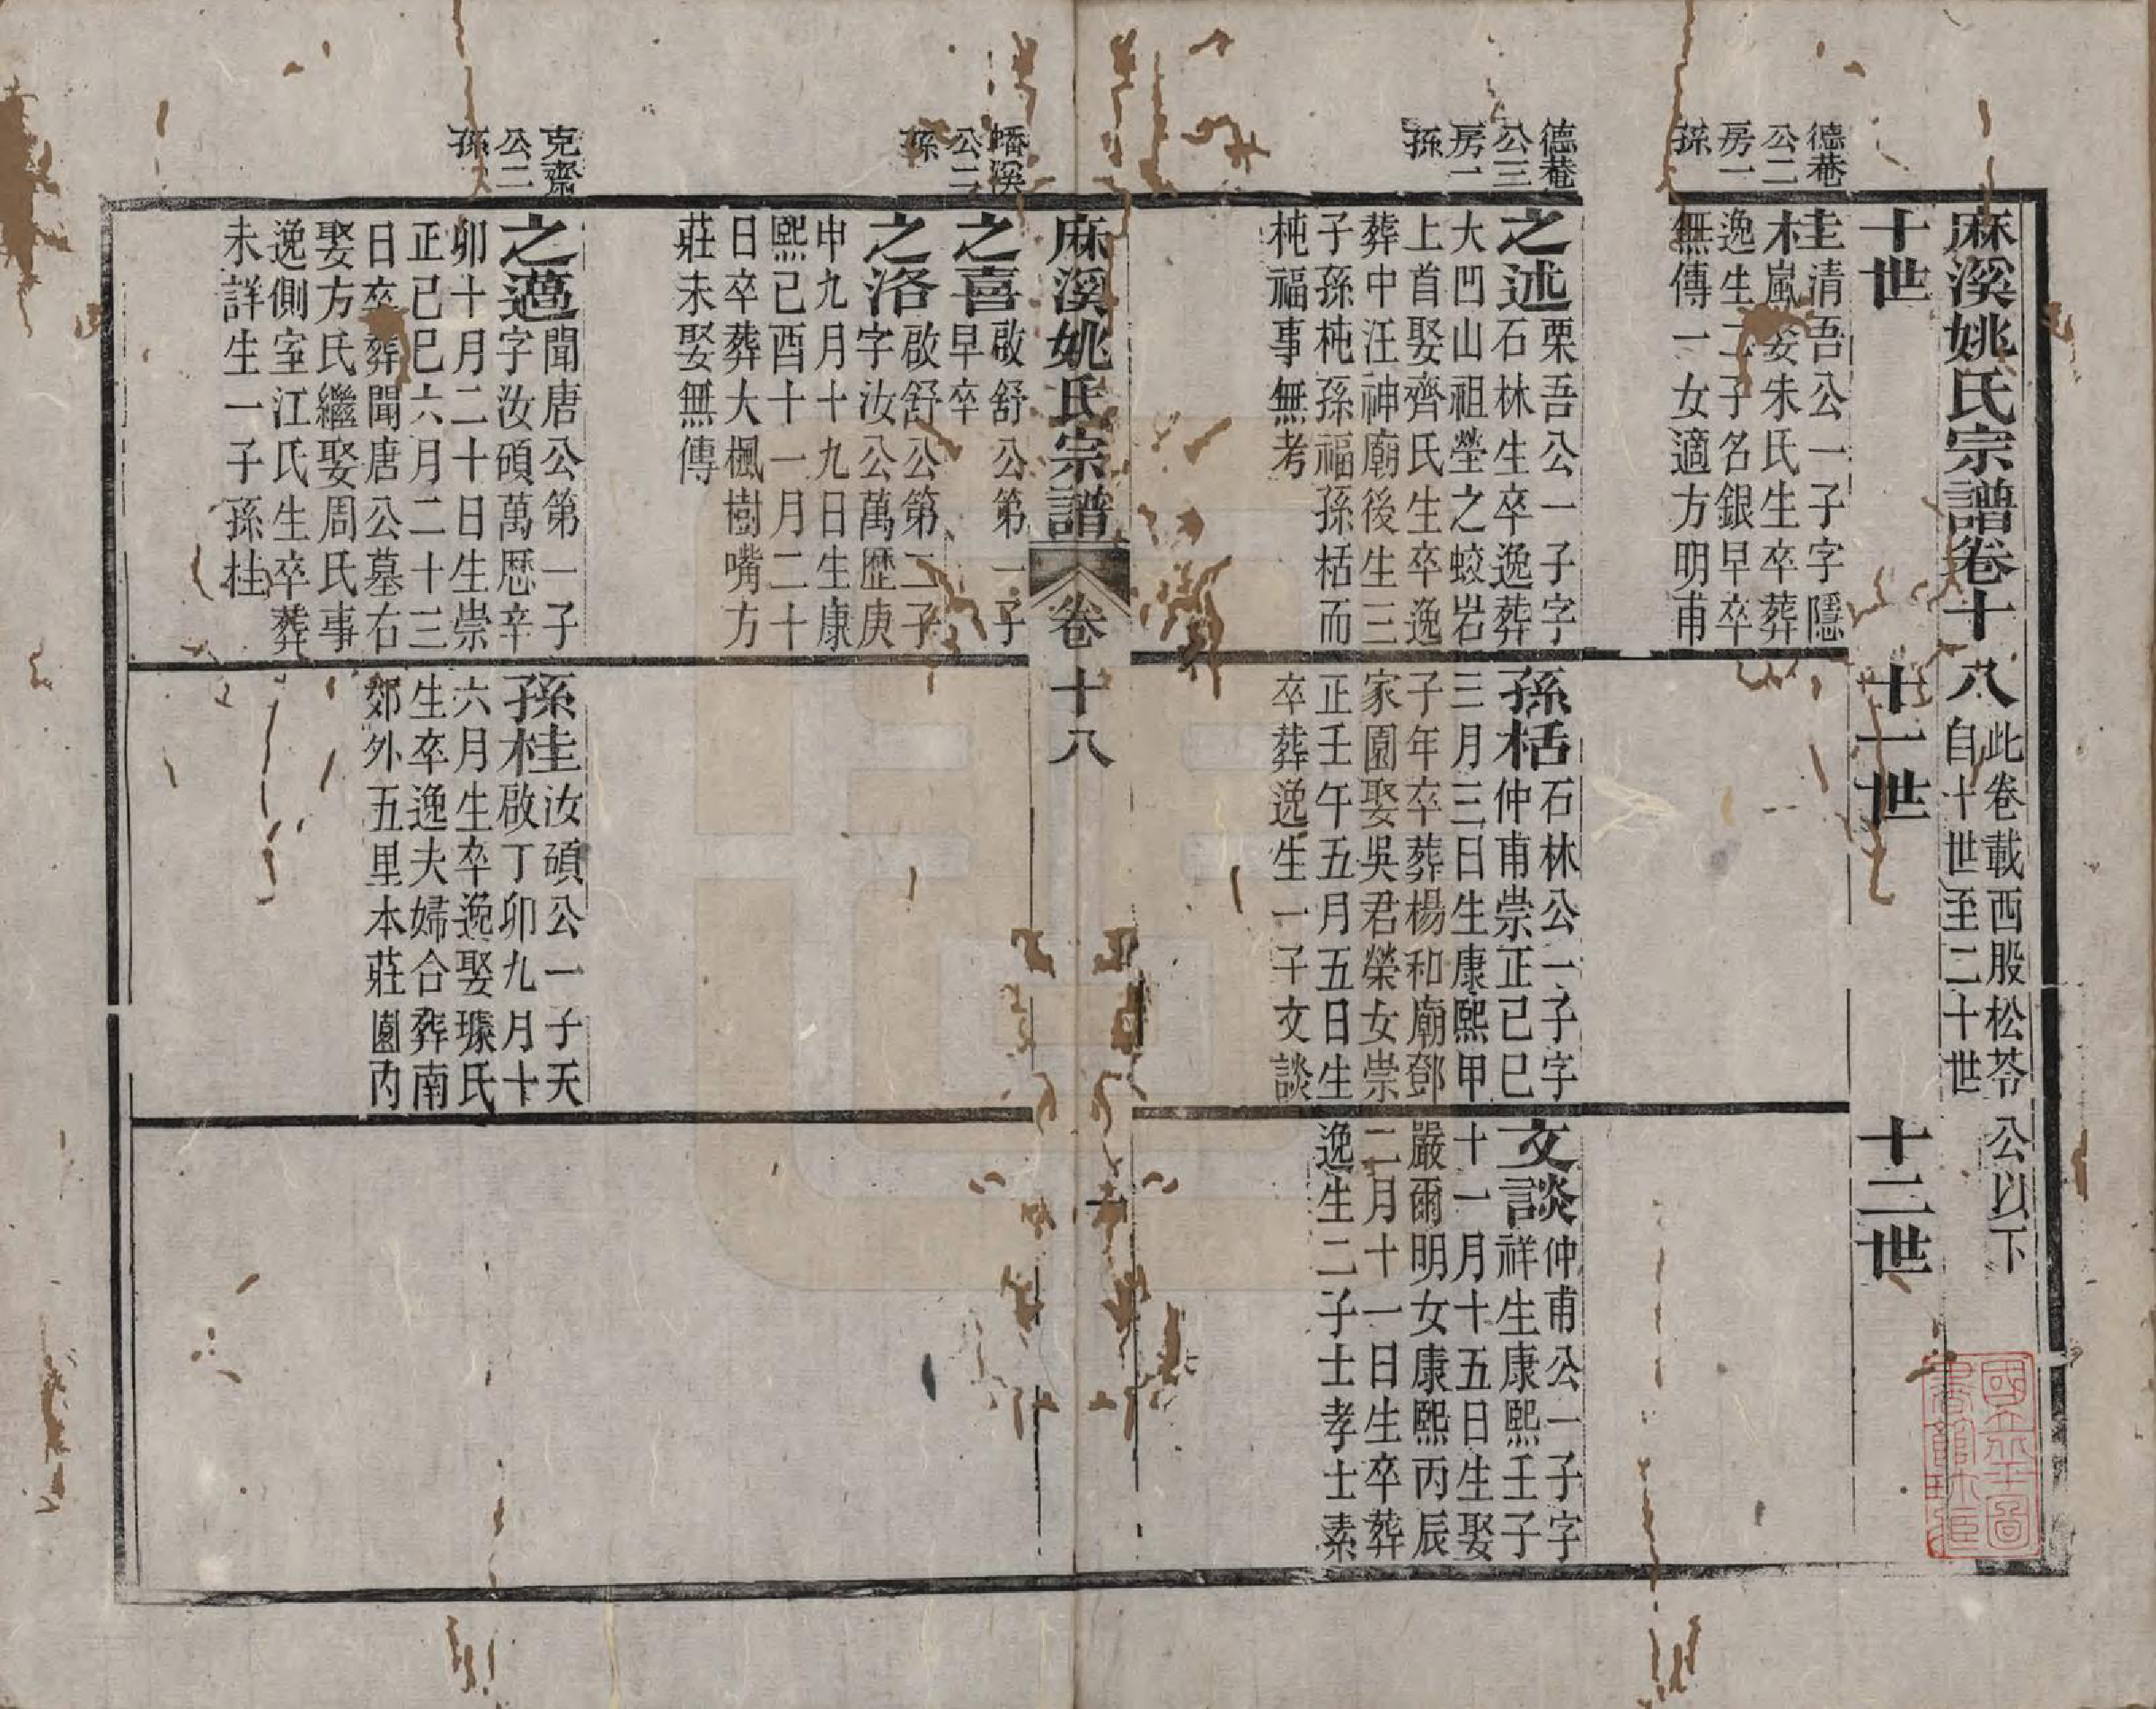 麻溪姚氏宗譜卷十八
此卷載西股松苓公以下
自十世至二十世
十世
十一世
十二世
德菴
公二
房一
孫
桂
清吾公一子字隱
嵐娶朱氏生卒葬
逸生二子名銀早卒
無傳一女適方明甫
德菴
公三
房一
孫
之述
栗吾公一子字
石林生卒逸葬
大凹山祖塋之蛟岩
上首娶齊氏生卒逸
葬中汪神廟後生三
子孫杶孫福孫栝而
杶福事無考
孫栝
石林公一子字
仲甫崇正己巳
三月三日生康熙甲
子年卒葬楊和廟鄧
家園娶吳君榮女崇
正壬午五月五日生
卒葬逸生一子文談
文談
仲甫公一子字
祥生康熙壬子
十一月十五日生娶
嚴爾明女康熙丙辰
二月十一日生卒葬
逸生二子士孝士素
麻溪姚氏宗譜
卷十八
一
蟠溪
公二
孫
之喜
啟舒公第一子
早卒
之洛
啟舒公第二子
字汝公萬歷庚
申九月十九日生康
熙己酉十一月二十
日卒葬大楓樹嘴方
莊未娶無傳
克齋
公二
孫
之邁
聞唐公第一子
字汝碩萬歷辛
卯十月二十日生崇
正己巳六月二十三
日卒葬聞唐公墓右
娶方氏繼娶周氏事
逸側室江氏生卒葬
未詳生一子孫桂
孫桂
汝碩公一子天
啟丁卯九月十
六月生卒逸娶璩氏
生卒逸夫婦合葬南
郊外五里本莊園內